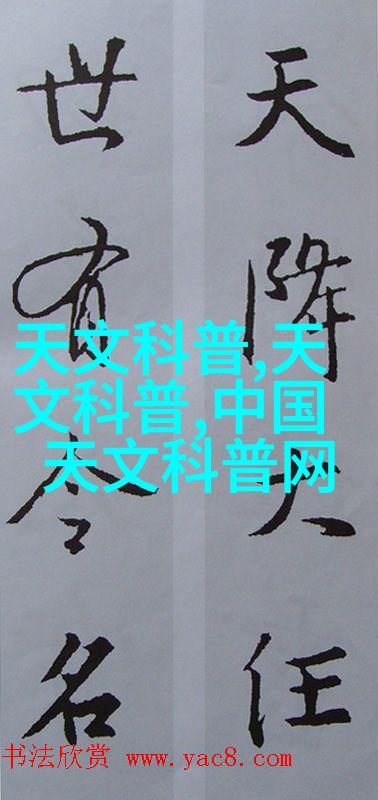 天降大任
世有令名
天文科普,天
文科普,中国
天文科普网
书法欣赏 www.yac8.com